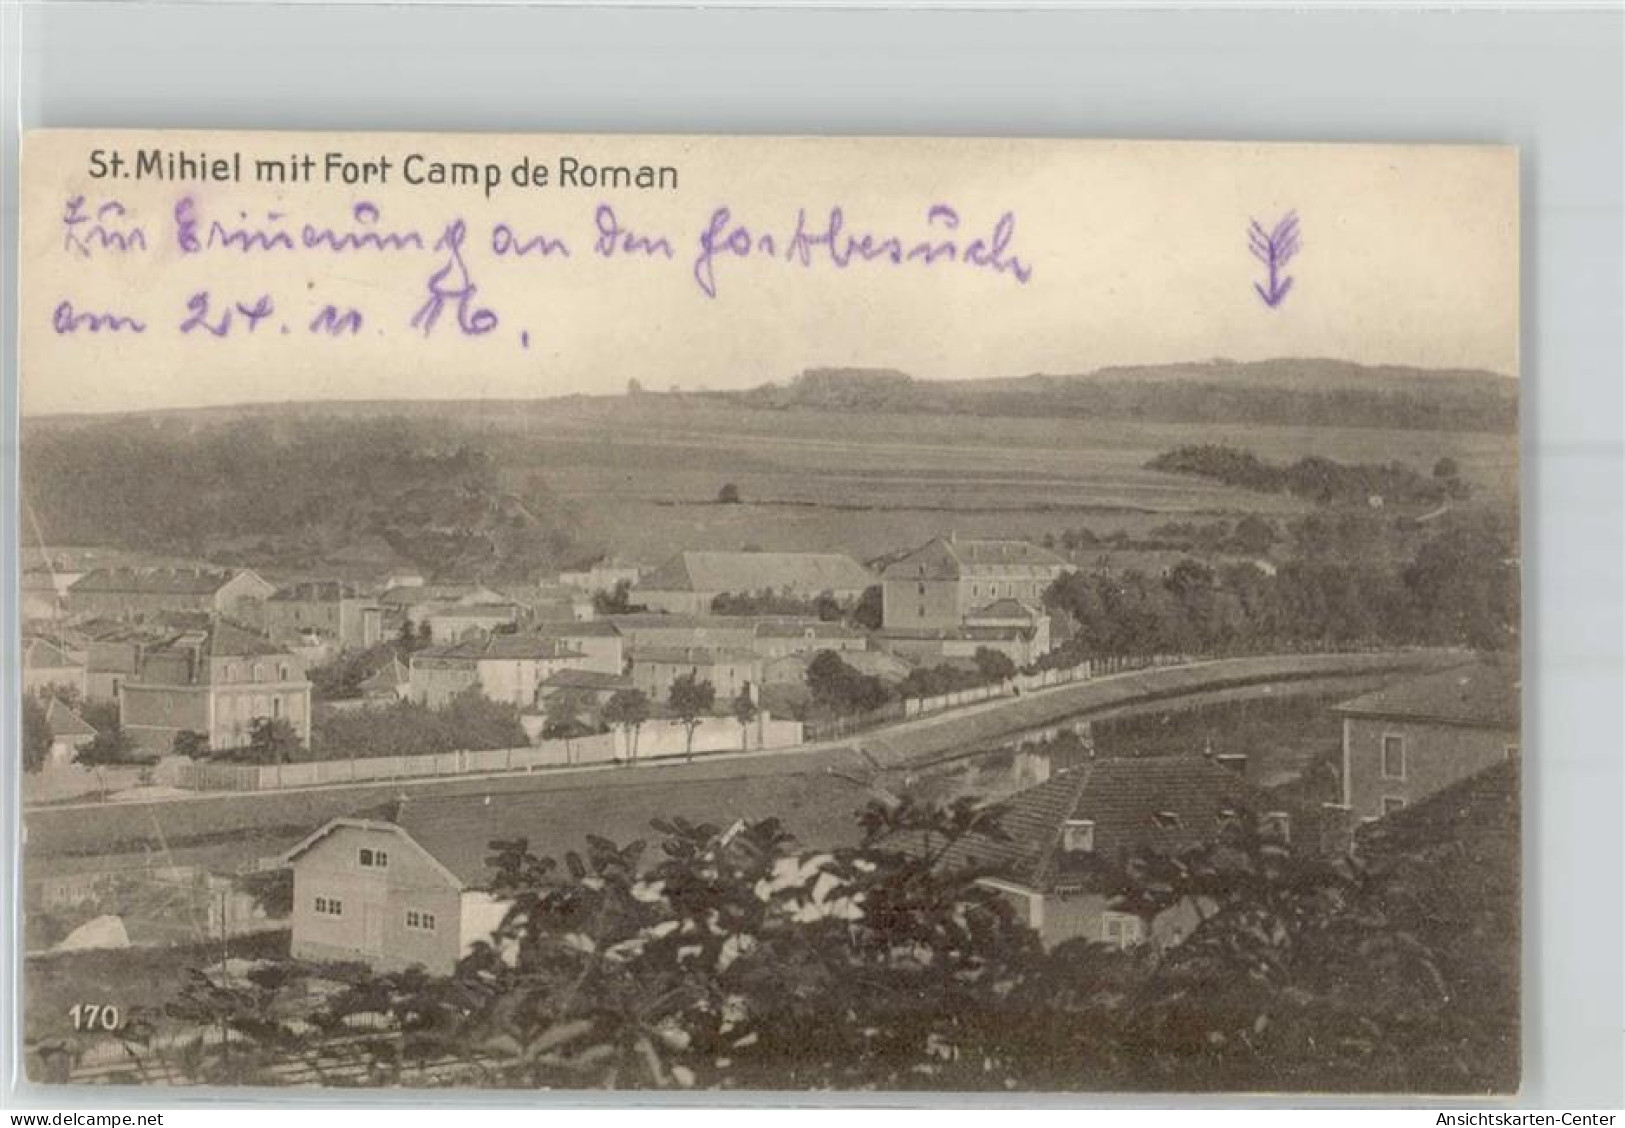 St. Mihiel mit Fort Camp de Roman
Zur Erinnerung an den Fortbesuch
am 24. 11. 16.
170
www.delcampe.net
Ansichtskarten-Center